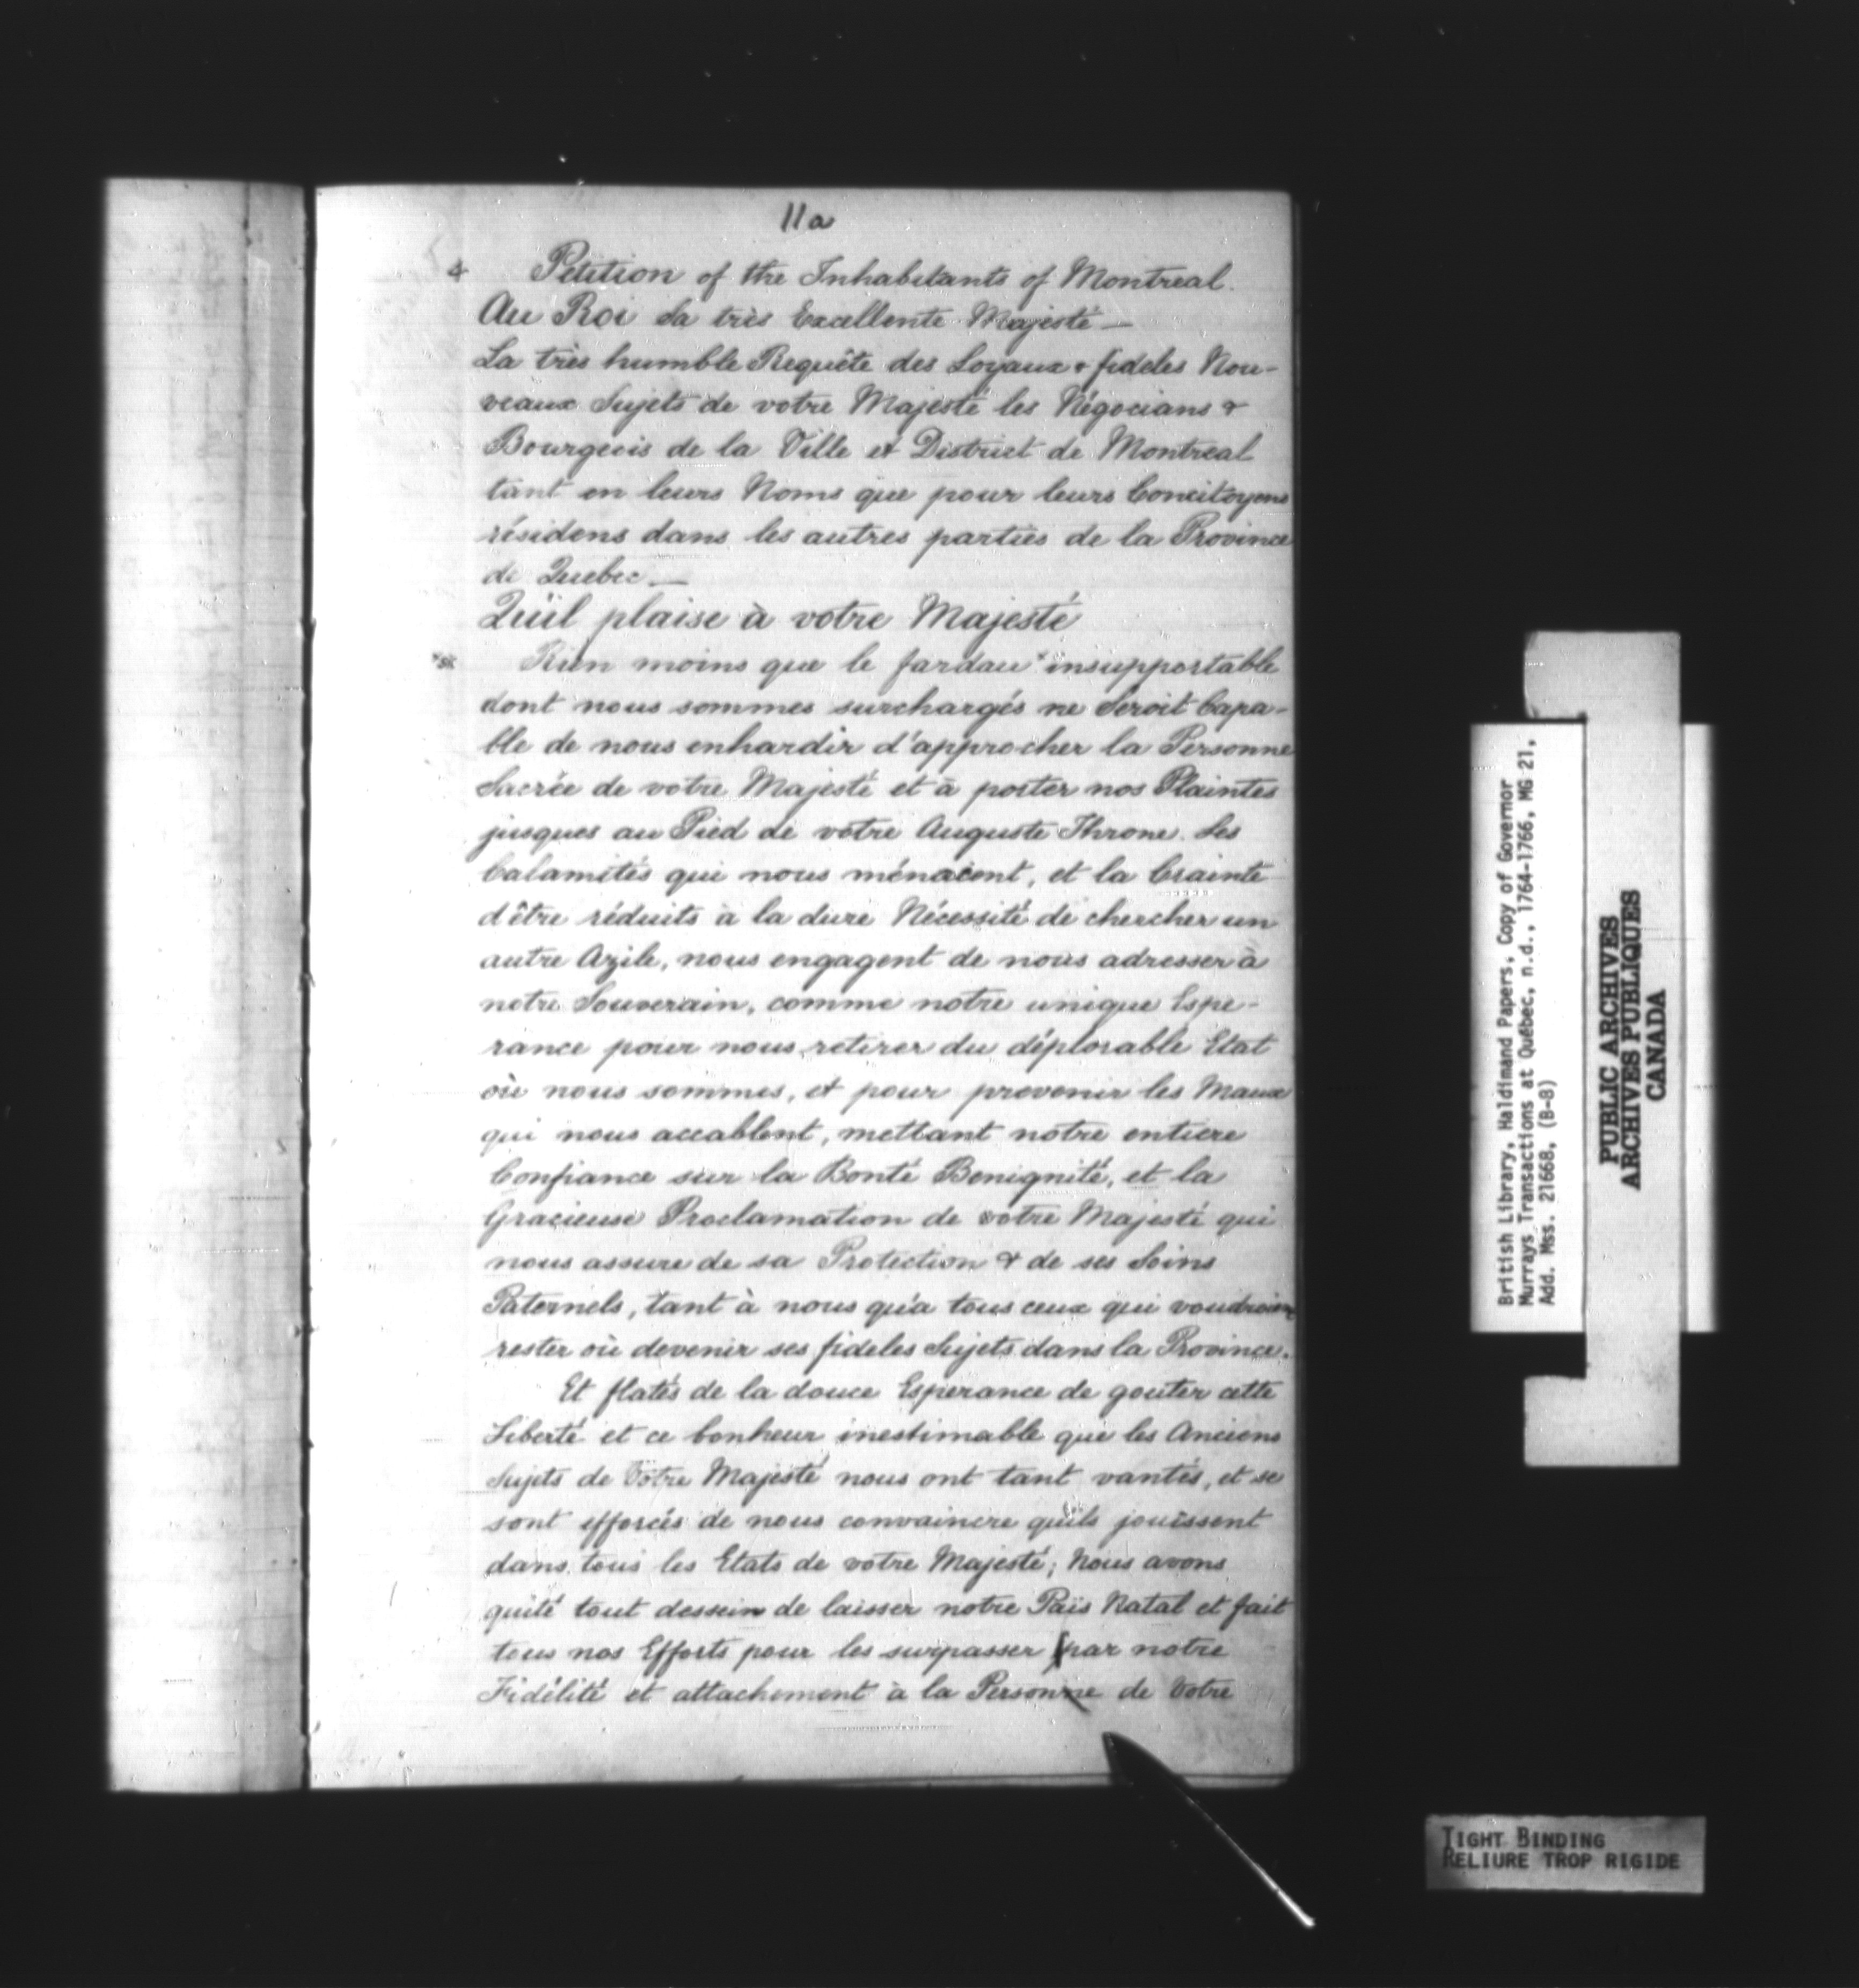 11a
4 Petition of the Inhabitants of Montreal.
Au Roi Sa très Excellente Majesté —
La très humble Requête des Loyaux & fideles Nou-
veaux Sujets de votre Majesté les Négocians &
Bourgeois de la Ville et District de Montreal
tant en leurs Noms que pour leurs Concitoyens
résidens dans les autres parties de la Province
de Quebec —
Qu'il plaise à votre Majesté
*sic Rien moins que le fardau* insupportable
dont nous sommes surchargés ne Seroit Capa-
ble de nous enhardir d'approcher la Personne
Sacrée de votre Majesté et à porter nos Plaintes
jusques au Pied de votre Auguste Throne. Les
Calamités qui nous ménacent, et la Crainte
d'être réduits à la dure Nécessité de chercher un
autre Azile, nous engagent de nous adresser à
notre Souverain, comme notre unique Espe-
rance pour nous retirer du déplorable Etat
où nous sommes, et pour prevenir les Maux
qui nous accablent, mettant notre entiere
Confiance sur la Bonté Benignité, et la
Gracieuse Proclamation de votre Majesté qui
nous assure de sa Protection & de ses Soins
Paternels, tant à nous qu'a tous ceux qui voudroient
rester où devenir ses fideles Sujets dans la Province.
Et flatés de la douce Esperance de gouter cette
Liberté et ce bonheur inestimable que les Anciens
Sujets de Votre Majesté nous ont tant vantés, et se
sont efforcés de nous convaincre qu'ils jouissent
dans tous les Etats de votre Majesté; Nous avons
quité tout dessein de laisser notre Païs Natal et fait
tous nos Efforts pour les surpasser par notre
Fidélité et attachement à la Personne de Votre
British Library, Haldimand Papers, Copy of Governor
Murrays Transactions at Québec, n.d., 1764-1766, MG 21,
Add. Mss. 21668, (B-8)
PUBLIC ARCHIVES
ARCHIVES PUBLIQUES
CANADA
TIGHT BINDING
RELIURE TROP RIGIDE